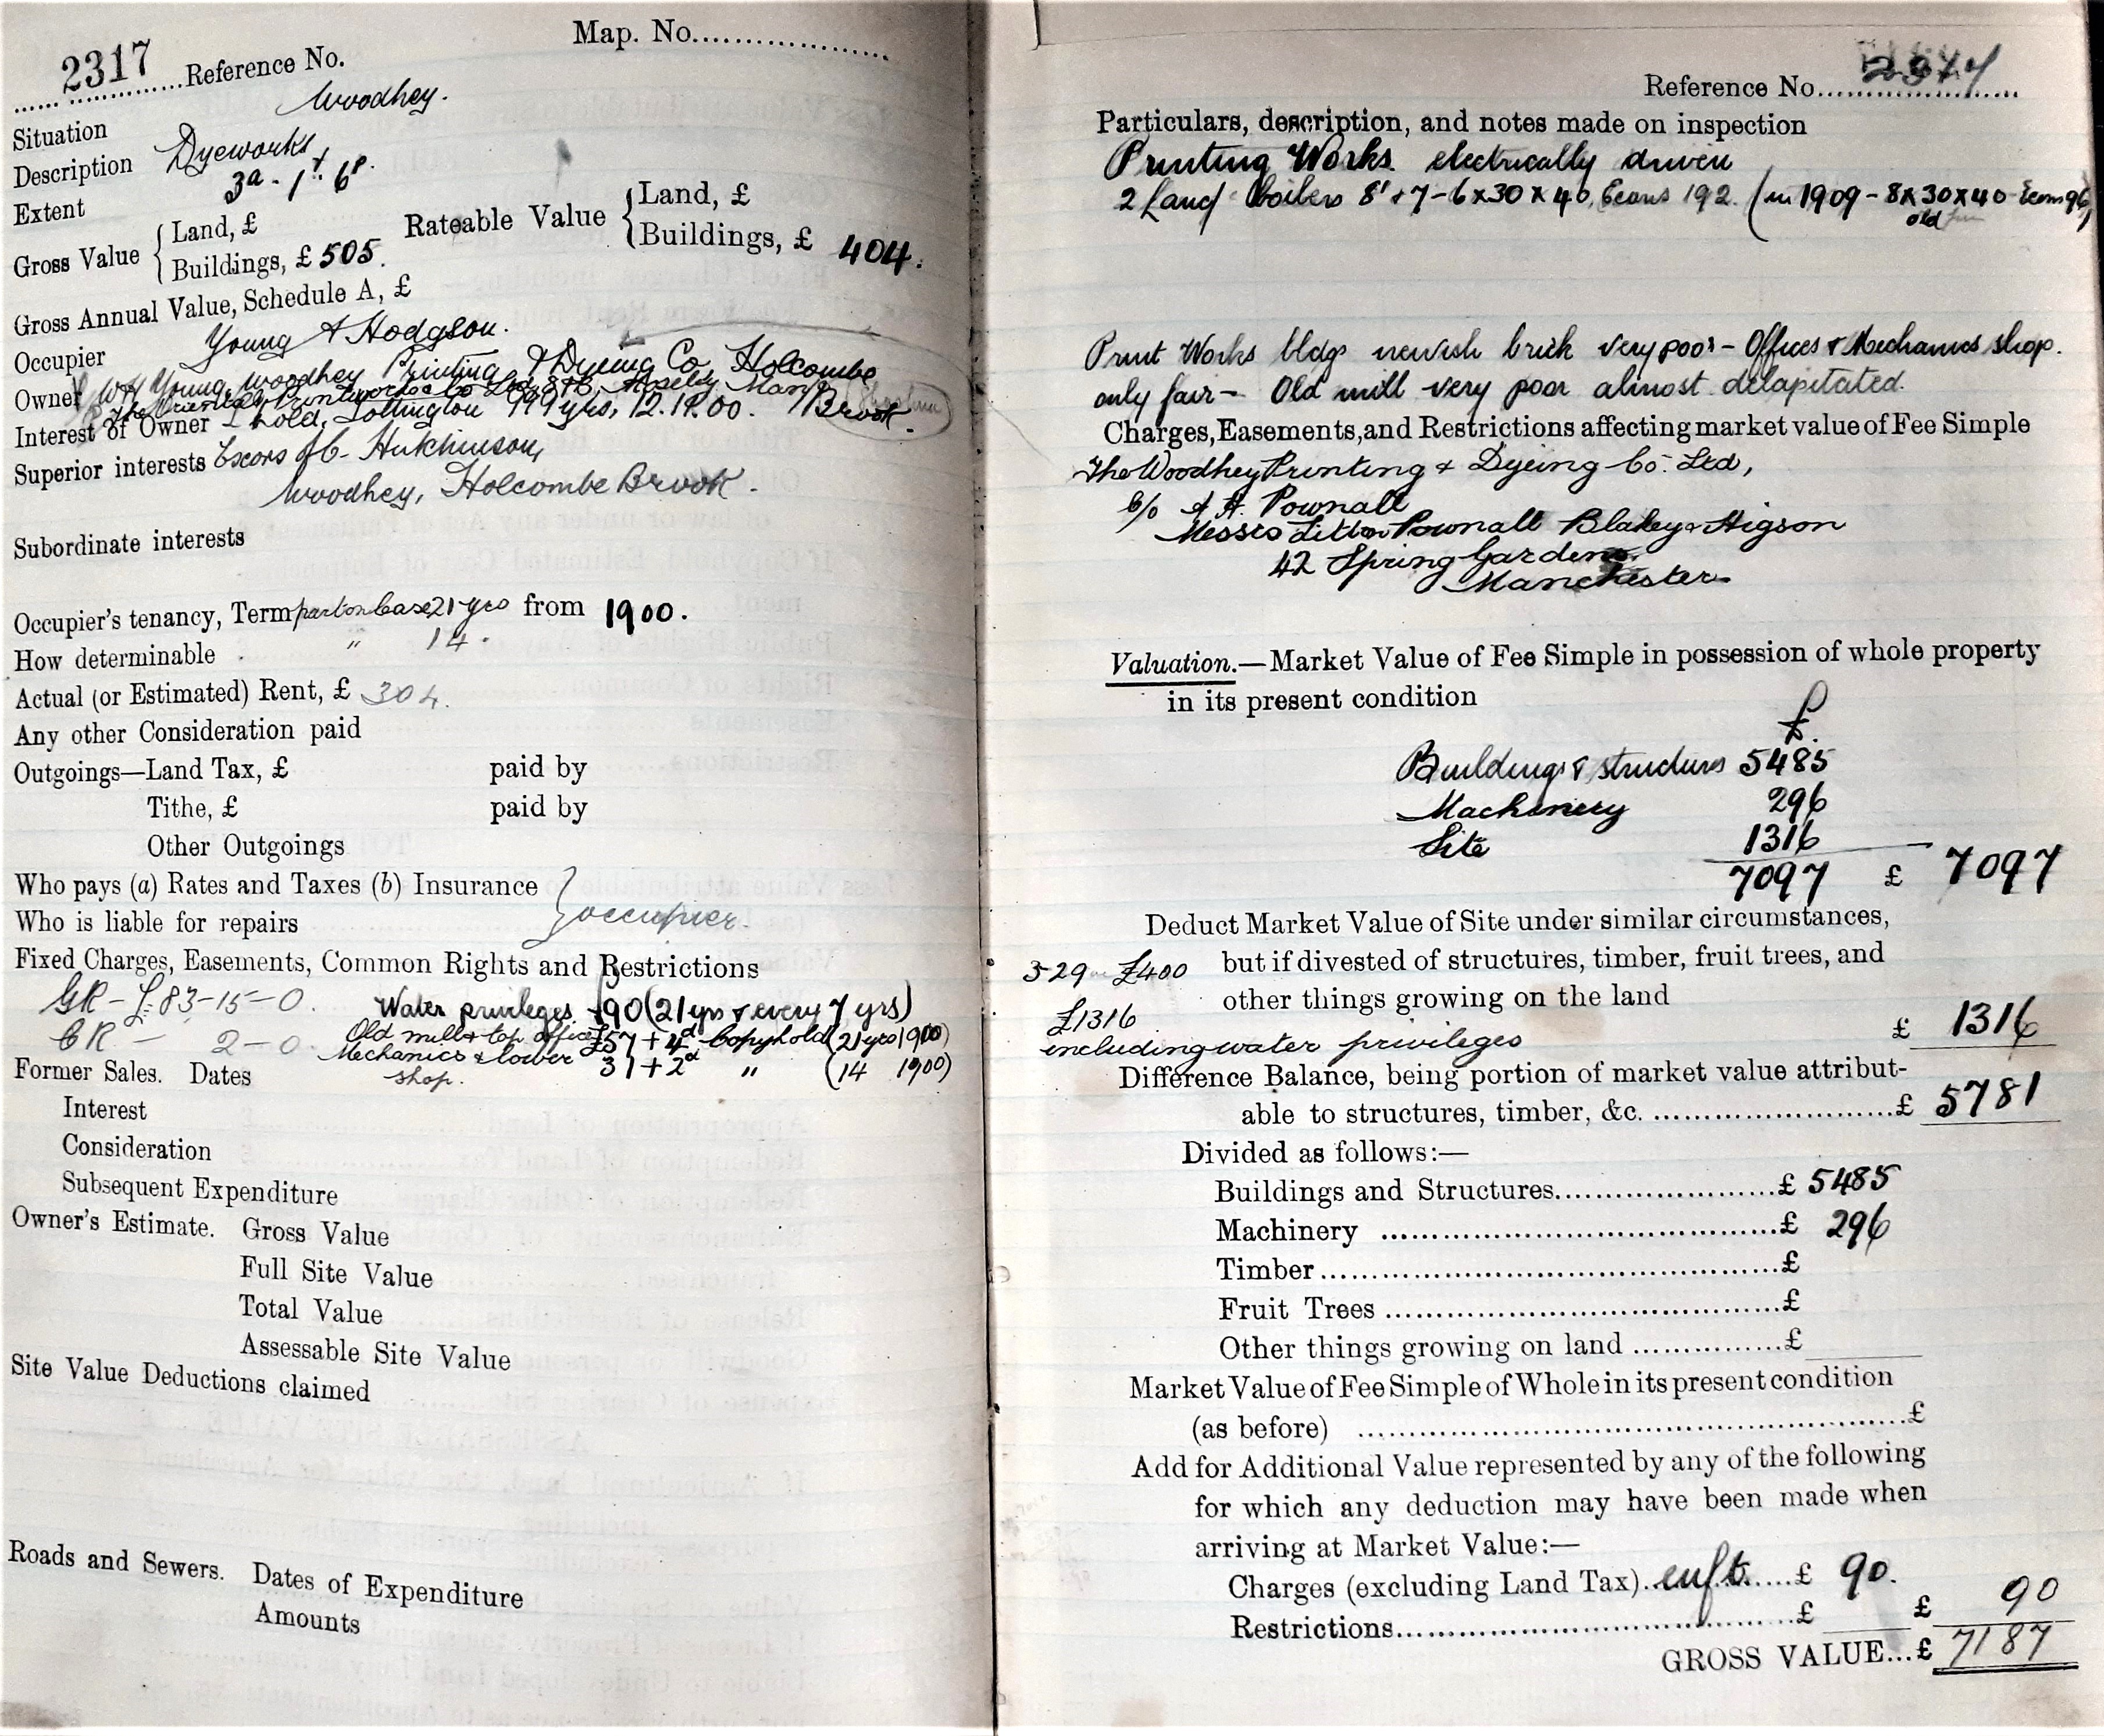 Map. No.
2317 Reference No.
Woodhey.
Situation
Description Dyeworks
Extent 3a - 1r. 6p.
Gross Value { Land, £
Buildings, £ 505.
Rateable Value { Land, £
Buildings, £ 404.
Gross Annual Value, Schedule A, £
Occupier Young & Hodgson.
Owner W H Young, Woodhey Printing & Dyeing Co Holcombe Brook.
The Printworks Co Ltd,
Interest of Owner Lhold, Tottington 999 yrs, 12.12.00.
Superior interests Excors of C- Hutchinson,
Woodhey, Holcombe Brook.
Subordinate interests
Occupier's tenancy, Term part on lease 21 yrs from 1900.
How determinable " 14.
Actual (or Estimated) Rent, £ 304.
Any other Consideration paid
Outgoings—Land Tax, £ paid by
Tithe, £ paid by
Other Outgoings
Who pays (a) Rates and Taxes (b) Insurance
Who is liable for repairs } occupier.
Fixed Charges, Easements, Common Rights and Restrictions
GR - £83-15-0. Water privileges £90 (21 yrs & every 7 yrs)
CR - 2-0. Old mill & top office £57 + 4d Copyhold (21 yrs 1900)
Mechanics & lower shop. 31 + 2d " (14 1900)
Former Sales. Dates
Interest
Consideration
Subsequent Expenditure
Owner's Estimate. Gross Value
Full Site Value
Total Value
Assessable Site Value
Site Value Deductions claimed
Roads and Sewers. Dates of Expenditure
Amounts
Reference No.
Particulars, description, and notes made on inspection
Printing Works electrically driven
2 Land boilers 8' & 7-6 x 30 x 40, Econs 192. (in 1909 - 8 x 30 x 40 - Econ 96)
old
Print Works bldgs newish brick very poor - Offices & Mechanics shop.
only fair - Old mill very poor almost delapitated.
Charges, Easements, and Restrictions affecting market value of Fee Simple
The Woodhey Printing & Dyeing Co. Ltd,
C/o A. A. Pownall
Messrs Litton Pownall Blakey & Higson
42 Spring Gardens.
Manchester.
Valuation.—Market Value of Fee Simple in possession of whole property
in its present condition
£
Buildings & structures 5485
Machinery 296
Site 1316
7097 £ 7097
Deduct Market Value of Site under similar circumstances,
3-29 £400 but if divested of structures, timber, fruit trees, and
other things growing on the land
£1316 £ 1316
including water privileges
Difference Balance, being portion of market value attribut-
able to structures, timber, &c. £ 5781
Divided as follows:—
Buildings and Structures £ 5485
Machinery £ 296
Timber £
Fruit Trees £
Other things growing on land £
Market Value of Fee Simple of Whole in its present condition
(as before) £
Add for Additional Value represented by any of the following
for which any deduction may have been made when
arriving at Market Value:—
Charges (excluding Land Tax) enft. £ 90.
Restrictions £ £ 90
GROSS VALUE...£ 7187